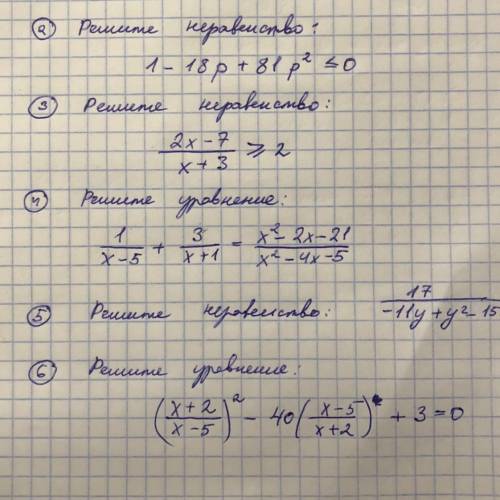 2 Решите неравенство:
1 - 18p + 81p² ≤ 0
3 Решите неравенство:
(2x - 7)/(x + 3) ≥ 2
4 Решите уравнение:
1/(x - 5) + 3/(x + 1) = (x² - 2x - 21)/(x² - 4x - 5)
5 Решите неравенство: 17/(-11y + y² - 15
6 Решите уравнение:
((x + 2)/(x - 5))² - 40((x - 5)/(x + 2)) + 3 = 0